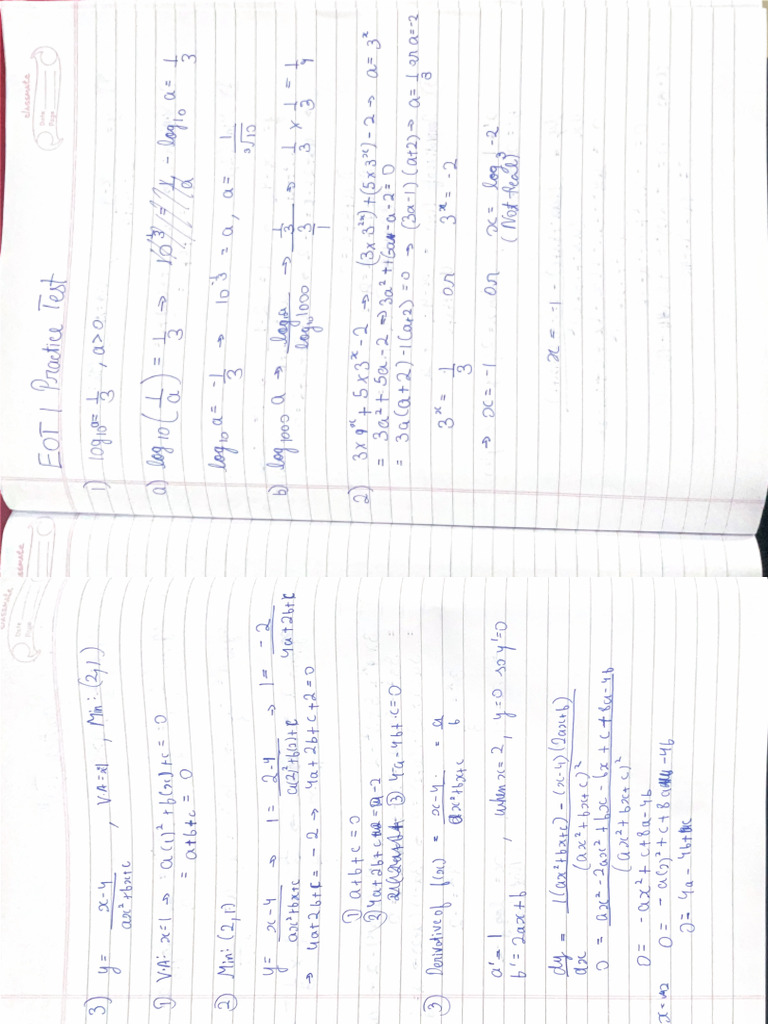 classmate
Date
Page
EOT 1 Practice Test
1) log₁₀a = 1/3 , a>0
a) log₁₀(1/a) = 1/3 → 10^(1/3) = 1/a - log₁₀ a = 1/3
log₁₀ a = -1/3 → 10^(-1/3) = a , a = 1/∛10
b) log₁₀₀₀ a → log₁₀a / log₁₀1000 → (1/3)/(3/1) → 1/3 × 1/3 = 1/4
2) 3×9ˣ + 5×3ˣ - 2 → (3×3²ˣ) + (5×3ˣ) - 2 → a = 3ˣ
= 3a² + 5a - 2 → 3a² + 6a - a - 2 = 0
= 3a(a+2) - 1(a+2) = 0 → (3a-1)(a+2) → a = 1/3 or a = -2
3ˣ = 1/3 or 3ˣ = -2
→ x = -1 or x = log₃ -2
(Not Real)
x = -1
classmate
Date
Page
3) y = (x-4)/(ax²+bx+c) , V.A = x1 , Min: (2,1)
① V.A: x=1 → a(1)² + b(1) + c = 0
= a+b+c = 0
② Min: (2,1)
y = (x-4)/(ax²+bx+c) → 1 = (2-4)/(a(2)²+b(2)+c) → 1 = -2/(4a+2b+c)
→ 4a+2b+c = -2 → 4a+2b+c+2 = 0
① a+b+c = 0
② 4a+2b+c = -2
③ 4a-4b+c = 0
③ Derivative of f(x) = (x-4)/(ax²+bx+c) = a/b
a' = 1
b' = 2ax+b , when x=2, y=0 so y'=0
dy/dx = (1(ax²+bx+c) - (x-4)(2ax+b))/(ax²+bx+c)²
0 = (ax² - 2ax² + bx - bx + c + 8a - 4b)/(ax²+bx+c)²
0 = -ax² + c + 8a - 4b
x=2 0 = -a(2)² + c + 8a - 4b
0 = 4a - 4b + c